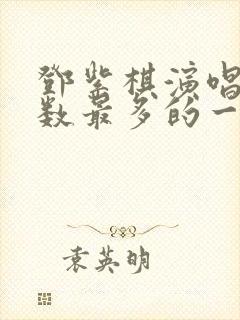 鄧紫棋演唱
数最多的一
袁英明